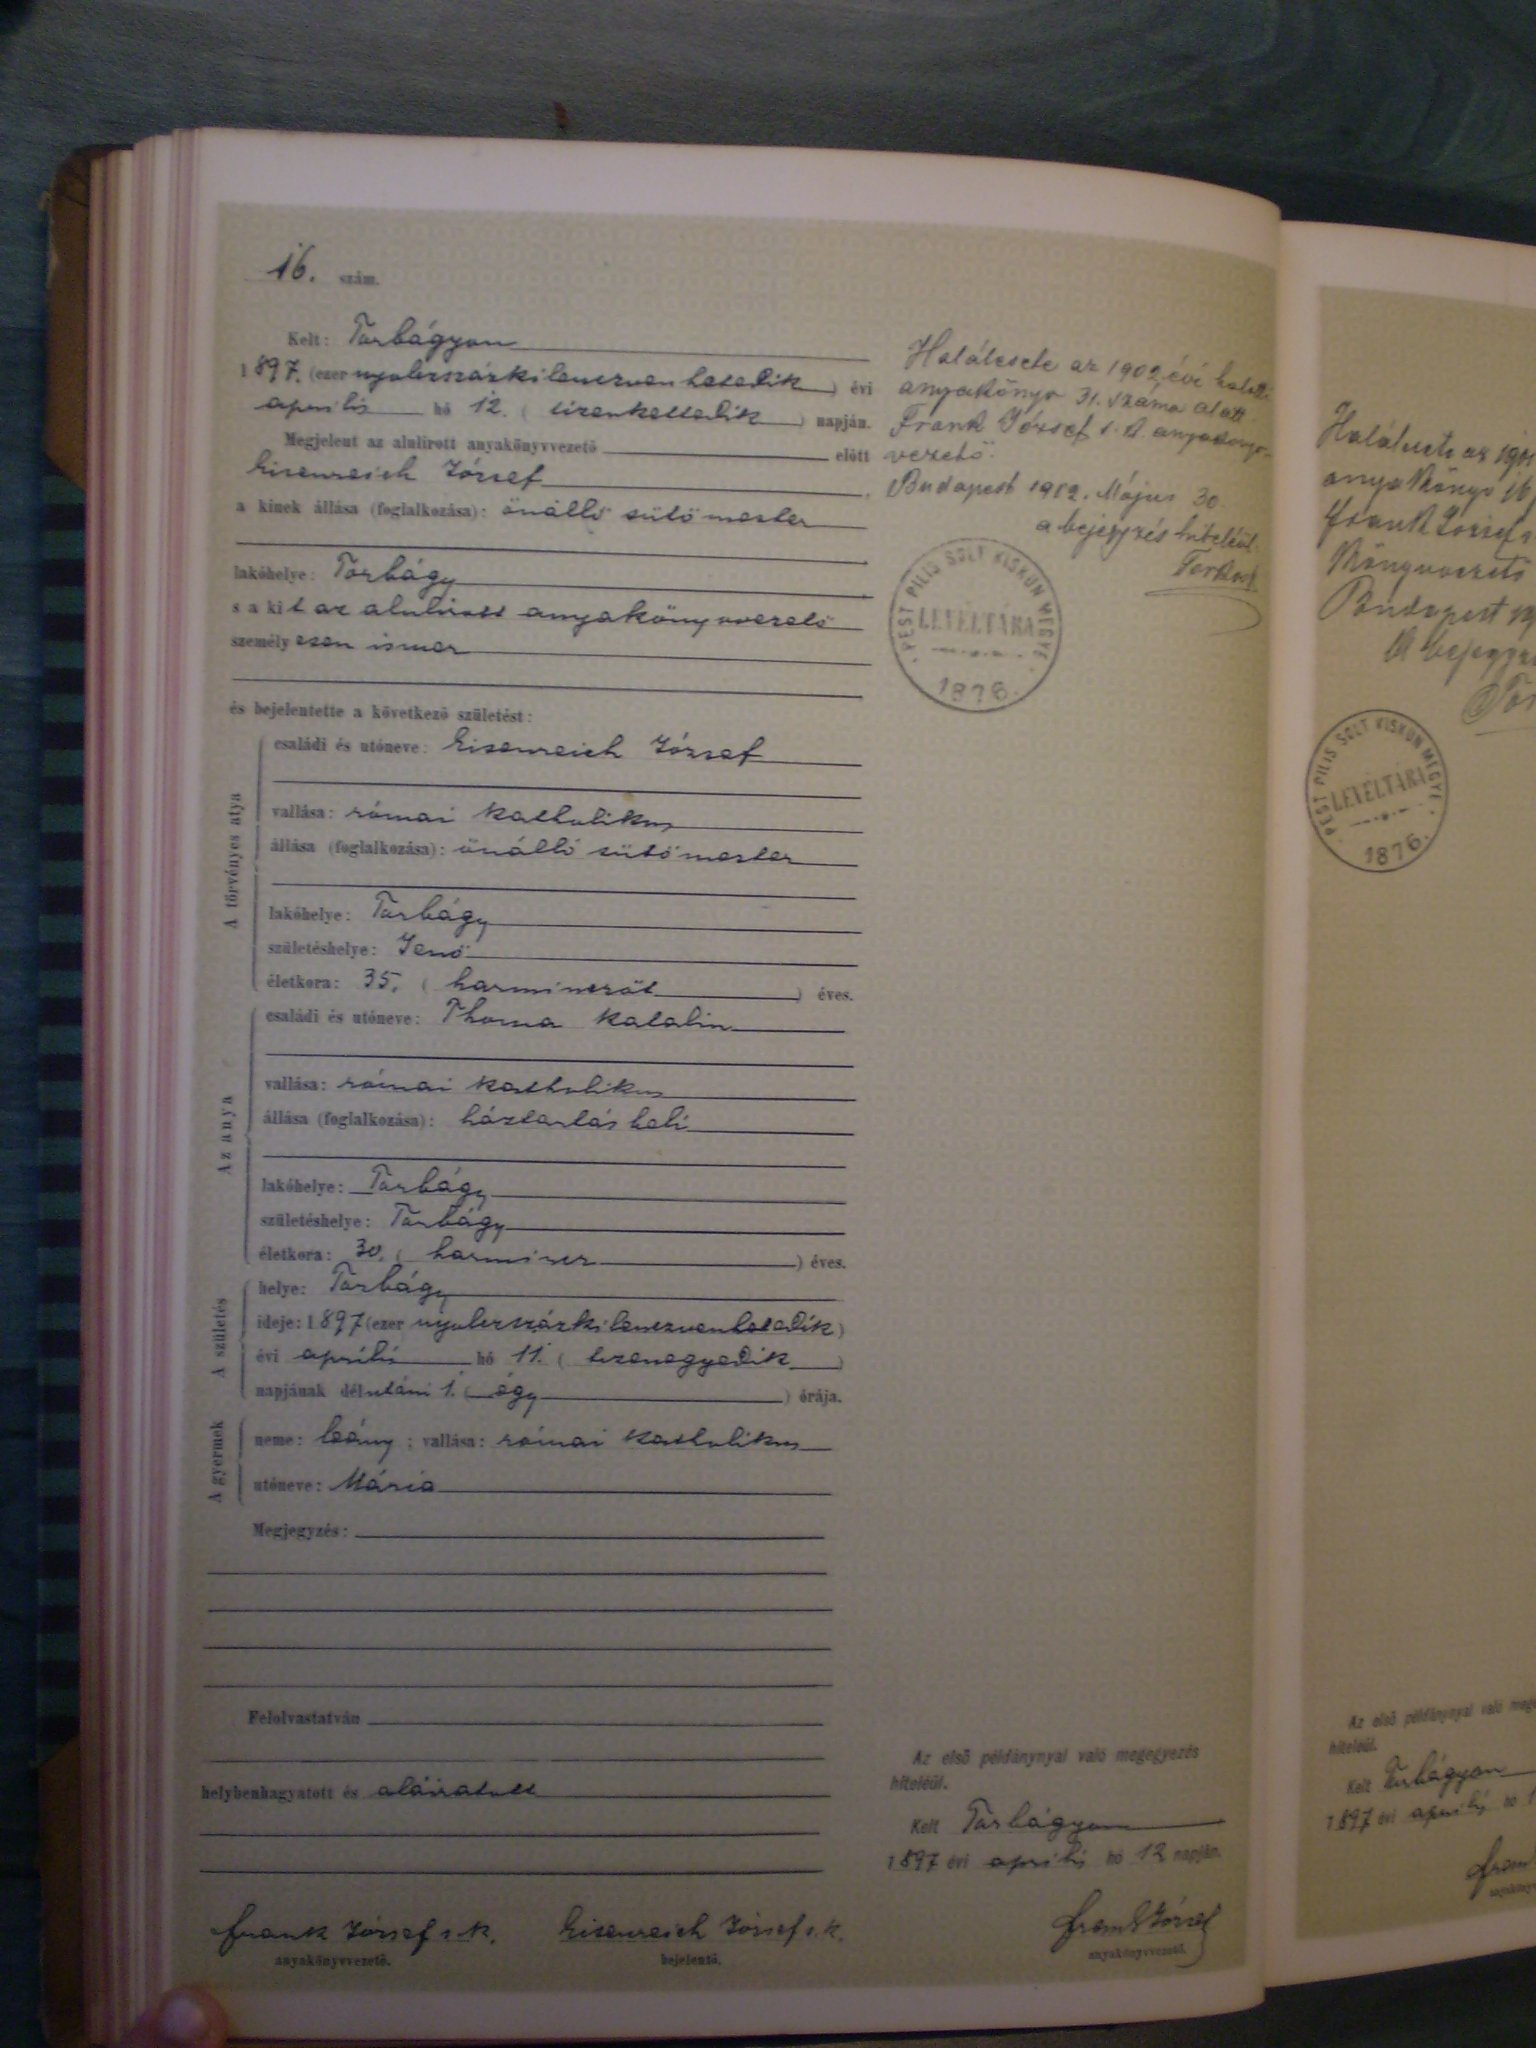 16. szám.
Kelt: Torbágyon
1897. (ezer nyolczszázkilenczvenhetedik) évi
április hó 12. (tizenkettedik) napján.
Megjelent az alulirott anyakönyvvezető előtt
Eisenreich József,
a kinek állása (foglalkozása): önálló sütőmester
lakóhelye: Torbágy
s a kit az alulirott anyakönyvvezető
személyesen ismer
és bejelentette a következő születést:
A törvényes atya
családi és utóneve: Eisenreich József
vallása: római katholikus
állása (foglalkozása): önálló sütőmester
lakóhelye: Torbágy
születéshelye: Jenő
életkora: 35. (harminczöt) éves.
Az anya
családi és utóneve: Thoma Katalin
vallása: római katholikus
állása (foglalkozása): háztartásbeli
lakóhelye: Torbágy
születéshelye: Torbágy
életkora: 30. (harmincz) éves.
A születés
helye: Torbágy
ideje: 1897 (ezer nyolczszázkilenczvenhetedik)
évi április hó 11. (tizenegyedik)
napjának délutáni 1. (egy) órája.
A gyermek
neme: leány; vallása: római katholikus
utóneve: Mária
Megjegyzés:
Felolvastatván
helybenhagyatott és aláiratott
Frank József s. k.
anyakönyvvezető.
Eisenreich József s. k.
bejelentő.
Halálesete az 1902 évi halotti
anyakönyv 31. száma alatt.
Frank József s. k. anyakönyv-
vezető.
Budapest 1902. Május 30.
a bejegyzés hiteléül.
PEST PILIS SOLT KISKUN MEGYE
LEVÉLTÁRA
1876.
Az első példánynyal való megegyezés
hiteléül.
Kelt Torbágyon
1897 évi április hó 12 napján.
Frank József
anyakönyvvezető.
Halálesete az
anyakönyv
Frank József s
könyvvezető
Budapest
A bejegyzés
PEST PILIS SOLT KISKUN MEGYE
LEVÉLTÁRA
1876.
Az első példánynyal való
hiteléül.
Kelt Torbágyon
1897 évi április hó